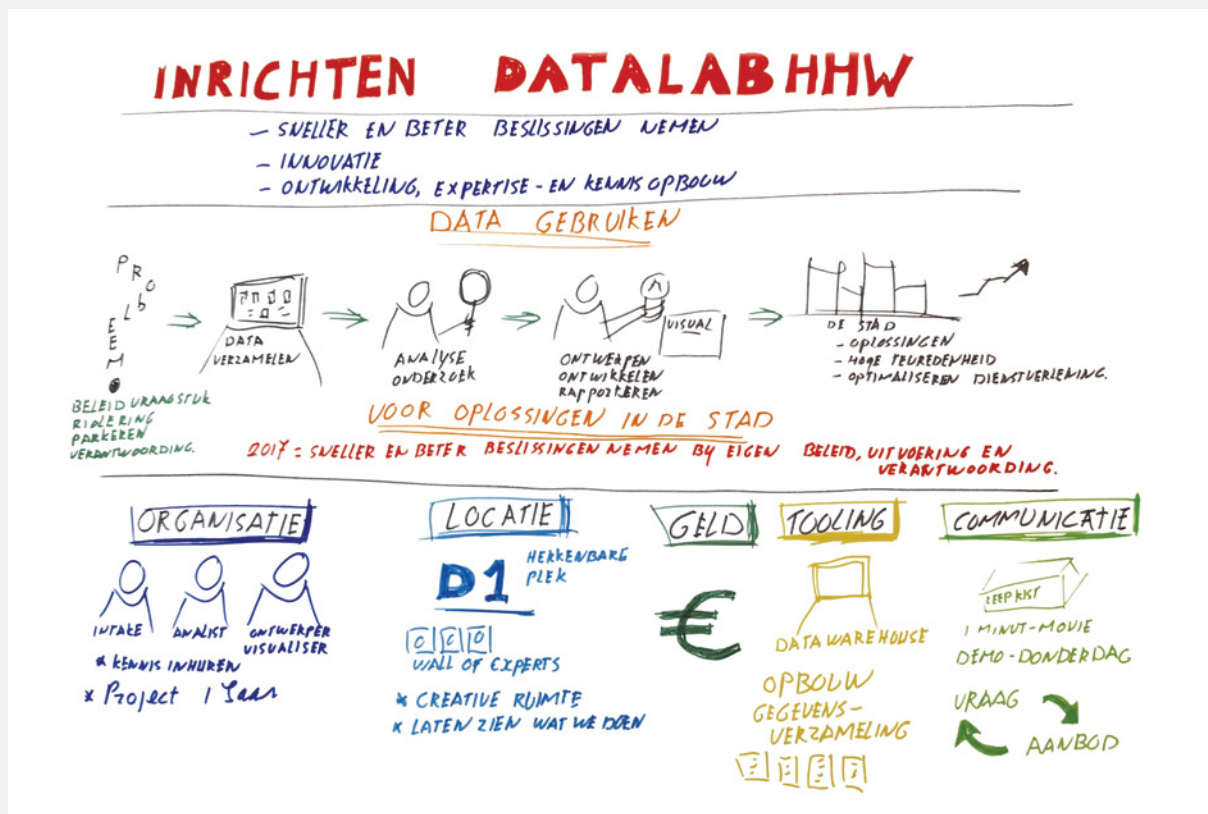 INRICHTEN DATALAB HHW
- SNELLER EN BETER BESLISSINGEN NEMEN
- INNOVATIE
- ONTWIKKELING, EXPERTISE - EN KENNIS OPBOUW
DATA GEBRUIKEN
PROBLEEM
BELEID VRAAGSTUK
RIOLERING
PARKEREN
VERANTWOORDING.
DATA
VERZAMELEN
ANALYSE
ONDERZOEK
VISUAL
ONTWERPEN
ONTWIKKELEN
RAPPORTEREN
DE STAD
- OPLOSSINGEN
- HOGE TEUREDENHEID
- OPTIMALISEREN DIENSTVERLENING.
VOOR OPLOSSINGEN IN DE STAD
2017 = SNELLER EN BETER BESLISSINGEN NEMEN BY EIGEN BELEID, UITVOERING EN
VERANTWOORDING.
ORGANISATIE
INTAKE
ANALIST
ONTWERPER
VISUALISER
* KENNIS INHUREN
* Project 1 Jaar
LOCATIE
D1
HERKENBARE
PLEK
WALL OF EXPERTS
* CREATIVE RUIMTE
* LATEN ZIEN WAT WE DOEN
GELD
€
TOOLING
DATA WAREHOUSE
OPBOUW
GEGEVENS-
VERZAMELING
COMMUNICATIE
ZEEPKIST
1 MINUT-MOVIE
DEMO-DONDERDAG
VRAAG
AANBOD